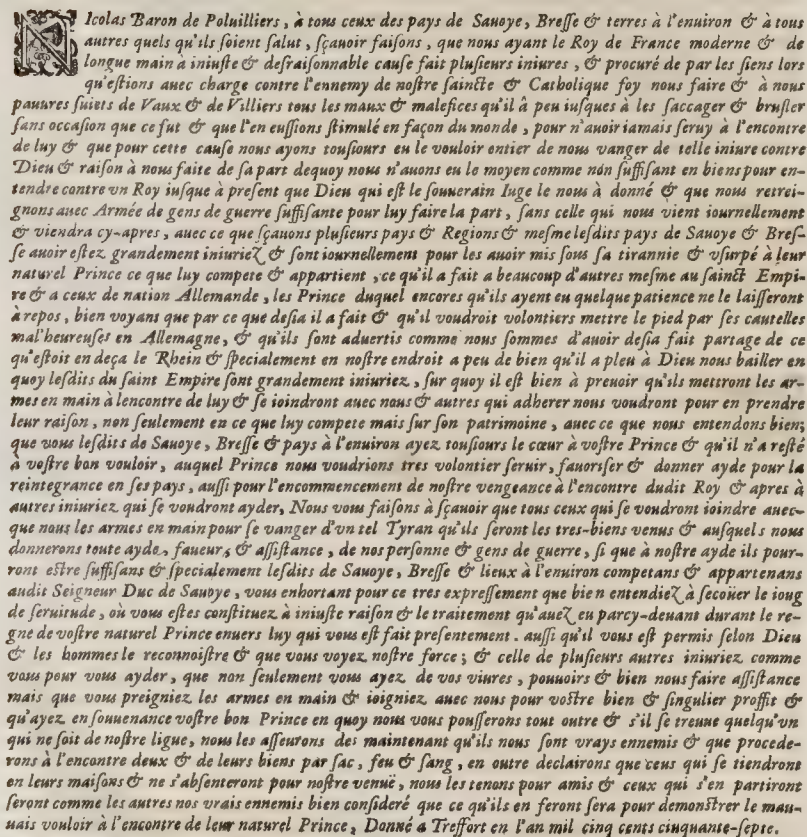 NIcolas Baron de Poluilliers, à tous ceux des pays de Sauoye, Bresse & terres à l'enuiron & à tous
autres quels qu'ils soient salut, sçauoir faisons, que nous ayant le Roy de France moderne & de
longue main à iniuste & desraisonnable cause fait plusieurs iniures, & procuré de par les siens lors
qu'estions auec charge contre l'ennemy de nostre saincte & Catholique foy nous faire & à nous
pauures suiets de Vaux & de Villiers tous les maux & malefices qu'il à peu iusques à les saccager & brusler
sans occasion que ce fut & que l'en eussions stimulé en façon du monde, pour n'auoir iamais seruy à l'encontre
de luy & que pour cette cause nous ayons tousiours eu le vouloir entier de nous vanger de telle iniure contre
Dieu & raison à nous faite de sa part dequoy nous n'auons eu le moyen comme non suffisant en biens pour en-
tendre contre vn Roy iusque à present que Dieu qui est le souuerain Iuge le nous à donné & que nous retrei-
gnons auec Armée de gens de guerre suffisante pour luy faire la part, sans celle qui nous vient iournellement
& viendra cy-apres, auec ce que sçauons plusieurs pays & Regions & mesme lesdits pays de Sauoye & Bres-
se auoir estez grandement iniuriez & sont iournellement pour les auoir mis sous sa tirannie & vsurpé à leur
naturel Prince ce que luy compete & appartient, ce qu'il a fait a beaucoup d'autres mesme au sainct Empi-
re & a ceux de nation Allemande, les Prince duquel encores qu'ils ayent eu quelque patience ne le laisseront
à repos, bien voyans que par ce que desia il a fait & qu'il voudroit volontiers mettre le pied par ses cautelles
mal'heureuses en Allemagne, & qu'ils sont aduertis comme nous sommes d'auoir desia fait partage de ce
qu'estoit en deça le Rhein & specialement en nostre endroit a peu de bien qu'il a pleu à Dieu nous bailler en
quoy lesdits du saint Empire sont grandement iniuriez, sur quoy il est bien à preuoir qu'ils mettront les ar-
mes en main à lencontre de luy & se ioindront auec nous & autres qui adherer nous voudront pour en prendre
leur raison, non seulement en ce que luy compete mais sur son patrimoine, auec ce que nous entendons bien;
que vous lesdits de Sauoye, Bresse & pays à l'enuiron ayez tousiours le cœur à vostre Prince & qu'il n'a resté
à vostre bon vouloir, auquel Prince nous voudrions tres volontier seruir, fauoriser & donner ayde pour la
reintegrance en ses pays, aussi pour l'encommencement de nostre vengeance à l'encontre dudit Roy & apres à
autres iniuriez qui se voudront ayder, Nous vous faisons à sçauoir que tous ceux qui se voudront ioindre auec-
que nous les armes en main pour se vanger d'vn tel Tyran qu'ils seront les tres-biens venus & ausquels nous
donnerons toute ayde, faueur, & assistance, de nos personne & gens de guerre, si que à nostre ayde ils pour-
ront estre suffisans & specialement lesdits de Sauoye, Bresse & lieux à l'enuiron competans & appartenans
audit Seigneur Duc de Sauoye, vous enhortant pour ce tres expressement que bien entendiez à secoüer le ioug
de seruitude, où vous estes constituez à iniuste raison & le traitement qu'auez eu parcy-deuant durant le re-
gne de vostre naturel Prince enuers luy qui vous est fait presentement. aussi qu'il vous est permis selon Dieu
& les hommes le reconnoistre & que vous voyez nostre force; & celle de plusieurs autres iniuriez comme
vous pour vous ayder, que non seulement vous ayez de vos viures, pouuoirs & bien nous faire assistance
mais que vous preigniez les armes en main & ioigniez auec nous pour vostre bien & singulier proffit &
qu'ayez en souuenance vostre bon Prince en quoy nous vous pousserons tout outre & s'il se treuue quelqu'vn
qui ne soit de nostre ligue, nous les asseurons des maintenant qu'ils nous sont vrays ennemis & que procede-
rons à l'encontre deux & de leurs biens par sac, feu & sang, en outre declairons que ceus qui se tiendront
en leurs maisons & ne s'absenteront pour nostre venuë, nous les tenons pour amis & ceux qui s'en partiront
seront comme les autres nos vrais ennemis bien consideré que ce qu'ils en feront sera pour demonstrer le mau-
uais vouloir à l'encontre de leur naturel Prince, Donné a Treffort en l'an mil cinq cents cinquante-sept.